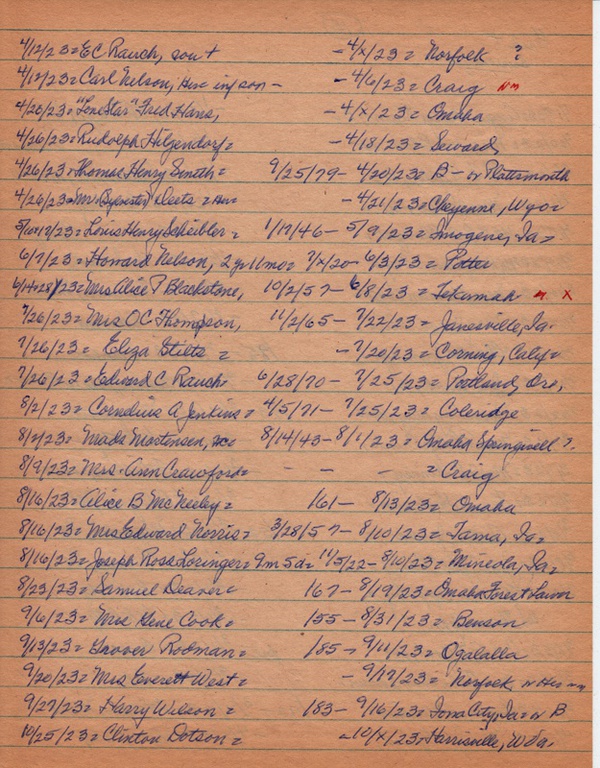 4/12/23 = E C Rauch, son + - 4/x/23 = Norfolk ?
4/12/23 = Carl Nelson, Her inf son - - 4/6/23 = Craig nm
4/20/23 = "Lone Star" Fred Hans, - 4/x/23 = Omaha
4/26/23 = Rudolph Hilgendorf = - 4/18/23 = Seward,
4/26/23 = Thomas Henry Smith = 9/25/79 - 4/20/23 = B - or Plattsmouth
4/26/23 = Mr Deets = Her - 4/21/23 = Cheyenne, Wyo =
5/10+17/23 = Louis Henry Scheibler = 1/17/46 - 5/9/23 = Imogene, Ia =
6/7/23 = Howard Nelson, 2 yr 11 mo = 7/x/20 - 6/3/23 = Potter
6/14+28/23 = Mrs Alice P Blackstone, 10/2/57 - 6/8/23 = Tekamah n. x
7/26/23 = Mrs O C Thompson, 11/2/65 - 7/22/23 = Janesville, Ia.
7/26/23 = Eliza Stilts = - 7/20/23 = Corning, Calif =
7/26/23 = Edward C Rauch = 6/28/70 - 7/25/23 = Portland, Ore,
8/2/23 = Cornelius A Jenkins = 4/5/71 - 7/25/23 = Coleridge
8/2/23 = Mads Mortensen, 8/14/43 - 8/1/23 = Omaha Springwell ?
8/9/23 = Mrs. Ann Crawford = - - - = Craig
8/16/23 = Alice B McNeeley = 161 - 8/13/23 = Omaha
8/16/23 = Mrs Edward Norris = 3/28/57 - 8/10/23 = Tama, Ia =
8/16/23 = Joseph Ross Loringer = 9m 5d = 11/5/22 - 8/10/23 = Mineola, Ia =
8/23/23 = Samuel Deaver = 167 - 8/19/23 = Omaha Forest Lawn
9/6/23 = Mrs Gene Cook = 155 - 8/31/23 = Benson
9/13/23 = Grover Rodman = 185 - 9/11/23 = Ogalalla
9/20/23 = Mrs Everett West = - 9/17/23 = Norfolk or Her
9/27/23 = Harry Wilson = 183 - 9/16/23 = Iowa City, Ia = or B
10/25/23 = Clinton Dotson = - 10/x/23 = Harrisville, W Va.